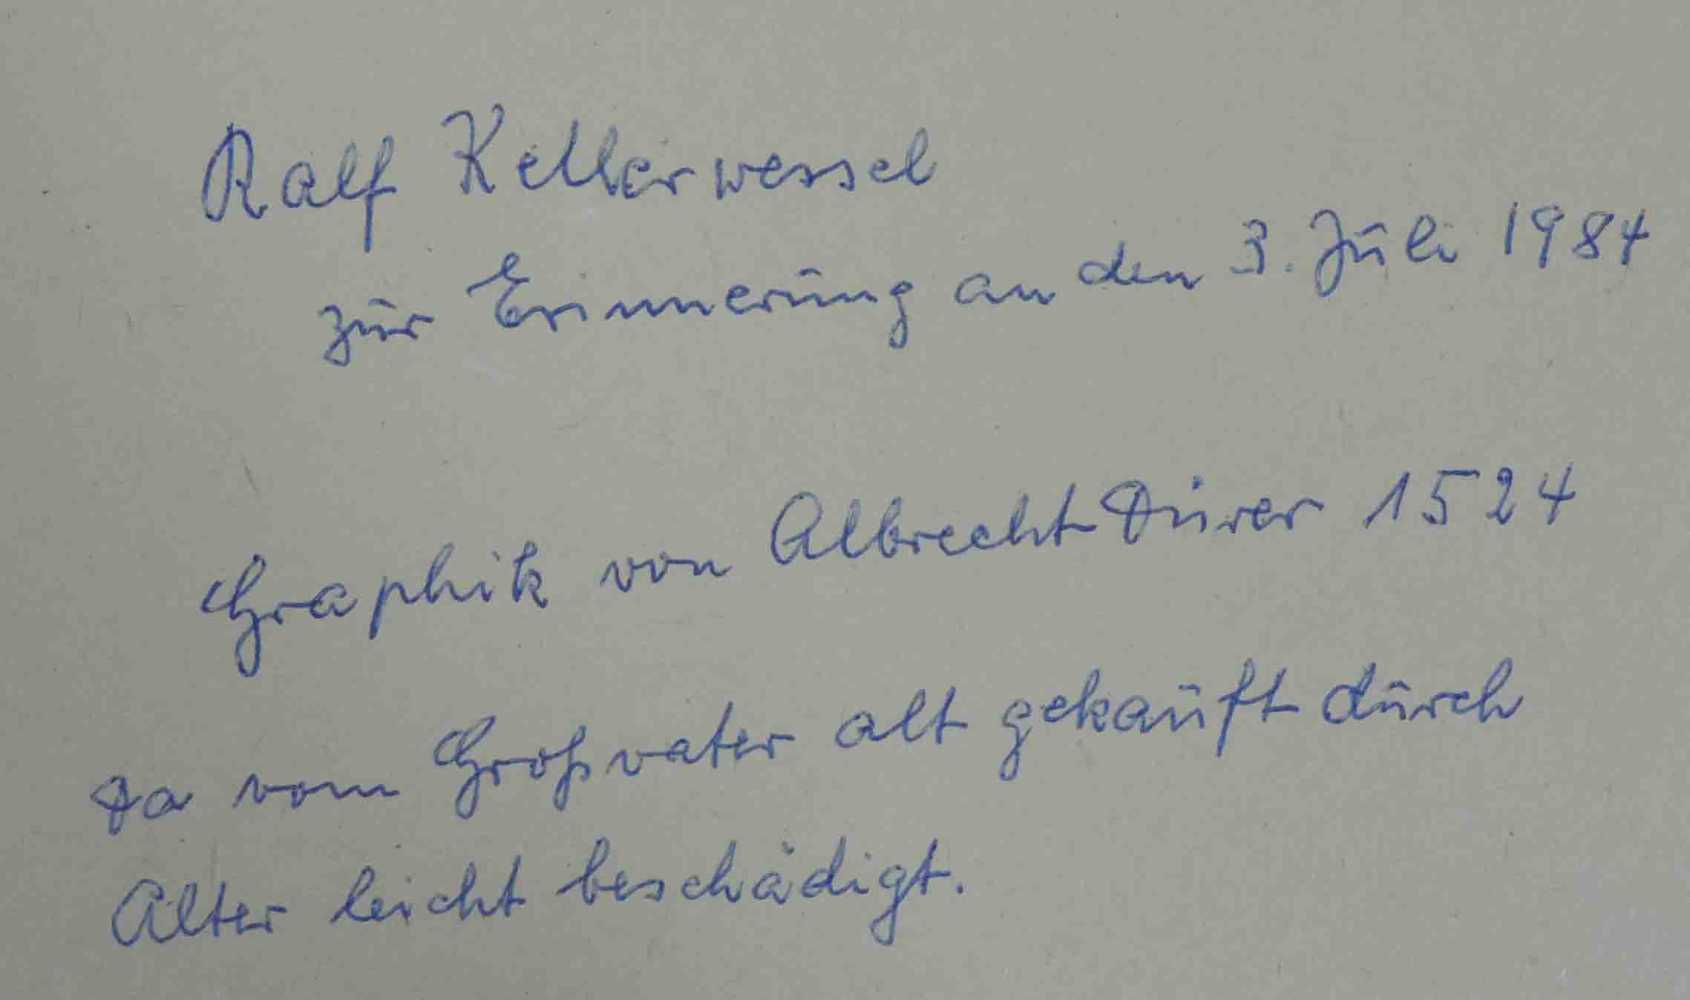 Ralf Kellerwessel
zur Erinnerung an den 3. Juli 1984
Graphik von Albrecht Dürer 1524
Da vom Großvater alt gekauft durch
Alter leicht beschädigt.